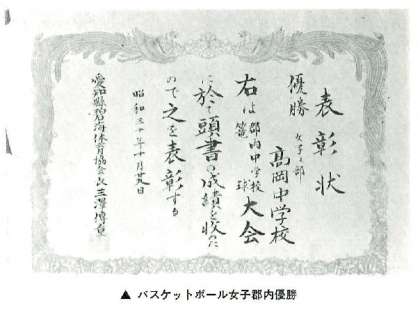 表彰状
優勝 女子之部
高岡中学校
右は郡内中学校篭球大会
に於て頭書の成績を収めた
ので之を表彰する
昭和三十年十月廿九日
愛知縣碧海体育協会長三澤博章
▲ バスケットボール女子郡内優勝